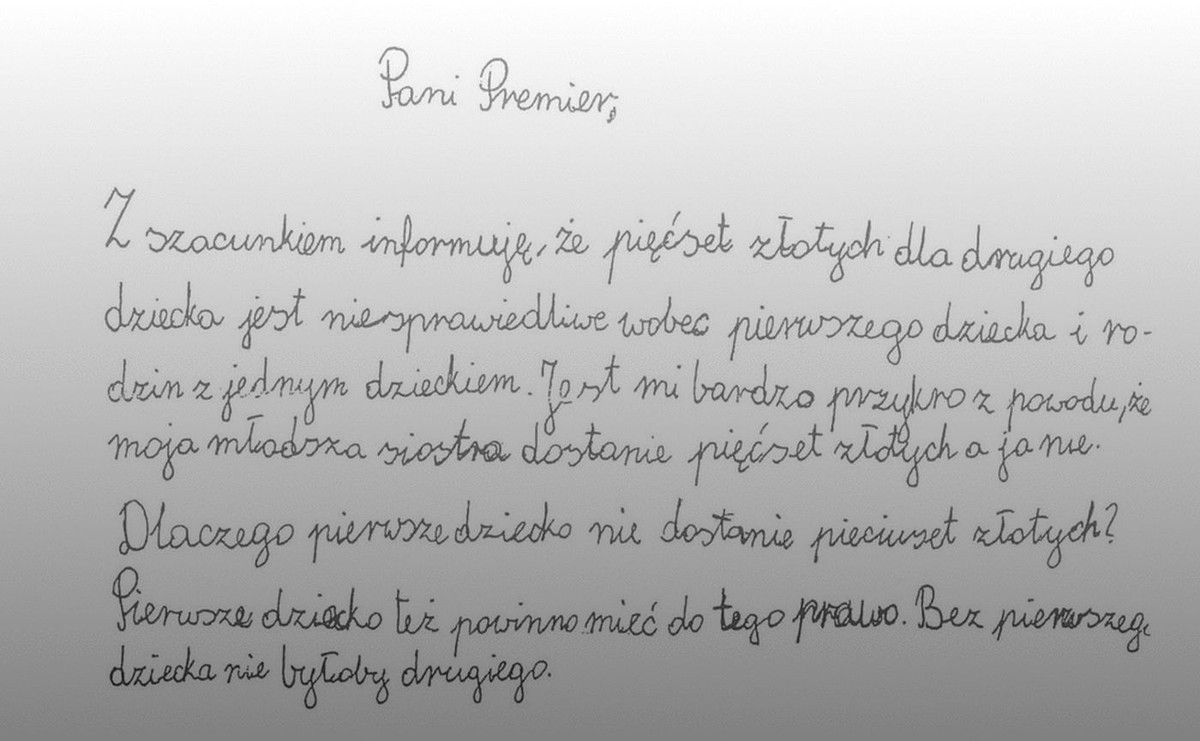 Pani Premier,
Z szacunkiem informuję, że pięćset złotych dla drugiego
dziecka jest niesprawiedliwe wobec pierwszego dziecka i ro-
dzin z jednym dzieckiem. Jest mi bardzo przykro z powodu, że
moja młodsza siostra dostanie pięćset złotych a ja nie.
Dlaczego pierwsze dziecko nie dostanie pieciuset złotych?
Pierwsze dziecko też powinno mieć do tego prawo. Bez pierwszego
dziecka nie byłoby drugiego.